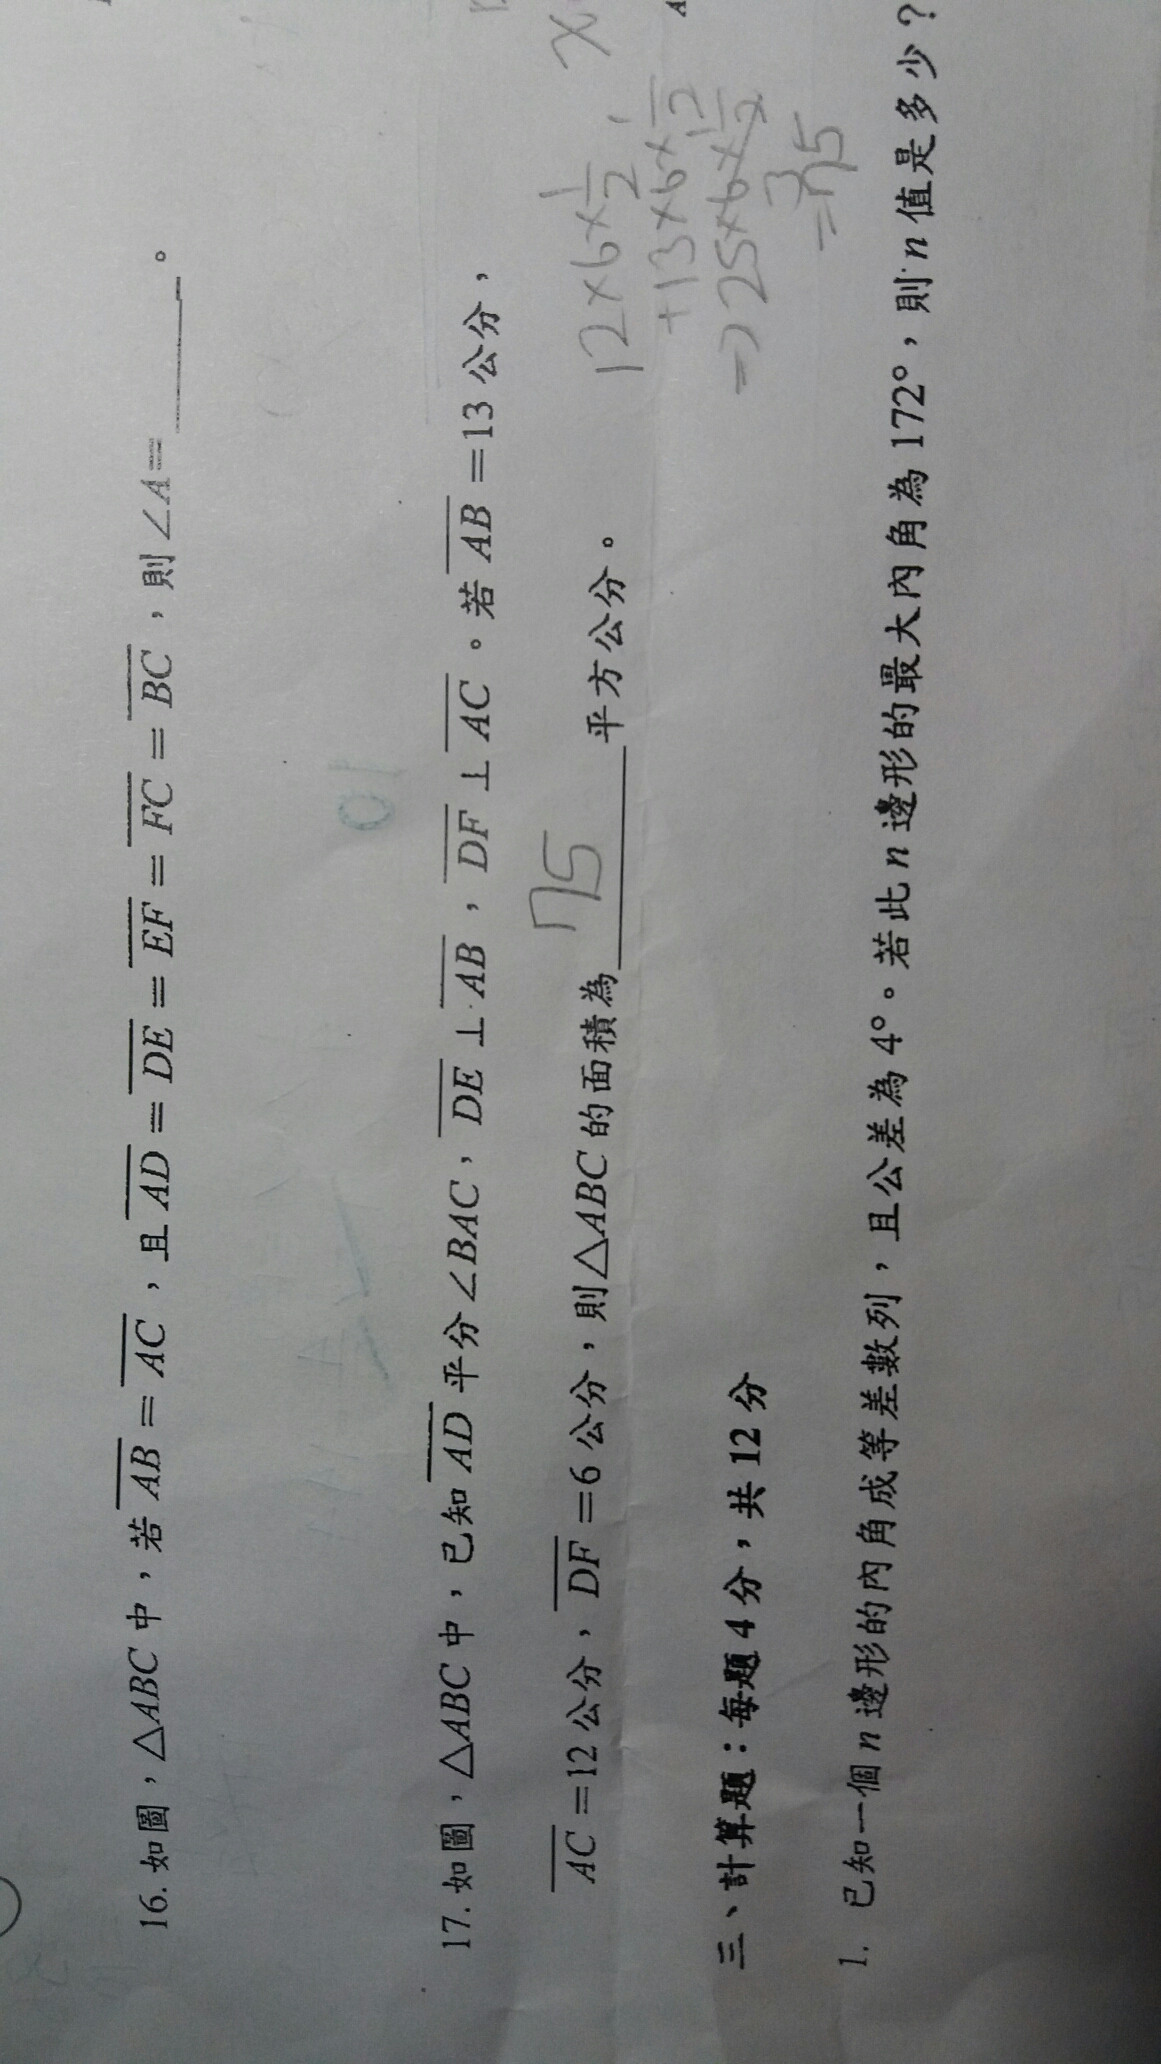 16. 如圖，△ABC中，若AB＝AC，且AD＝DE＝EF＝FC＝BC，則∠A＝______。
17. 如圖，△ABC中，已知AD平分∠BAC，DE⊥AB，DF⊥AC。若AB＝13公分，
AC＝12公分，DF＝6公分，則△ABC的面積為 75 平方公分。
12×6×1/2
+13×6×1/2
=>25×6×1/2
=75
三、計算題：每題4分，共12分
1. 已知一個n邊形的內角成等差數列，且公差為4°。若此n邊形的最大內角為172°，則n值是多少？
x
A